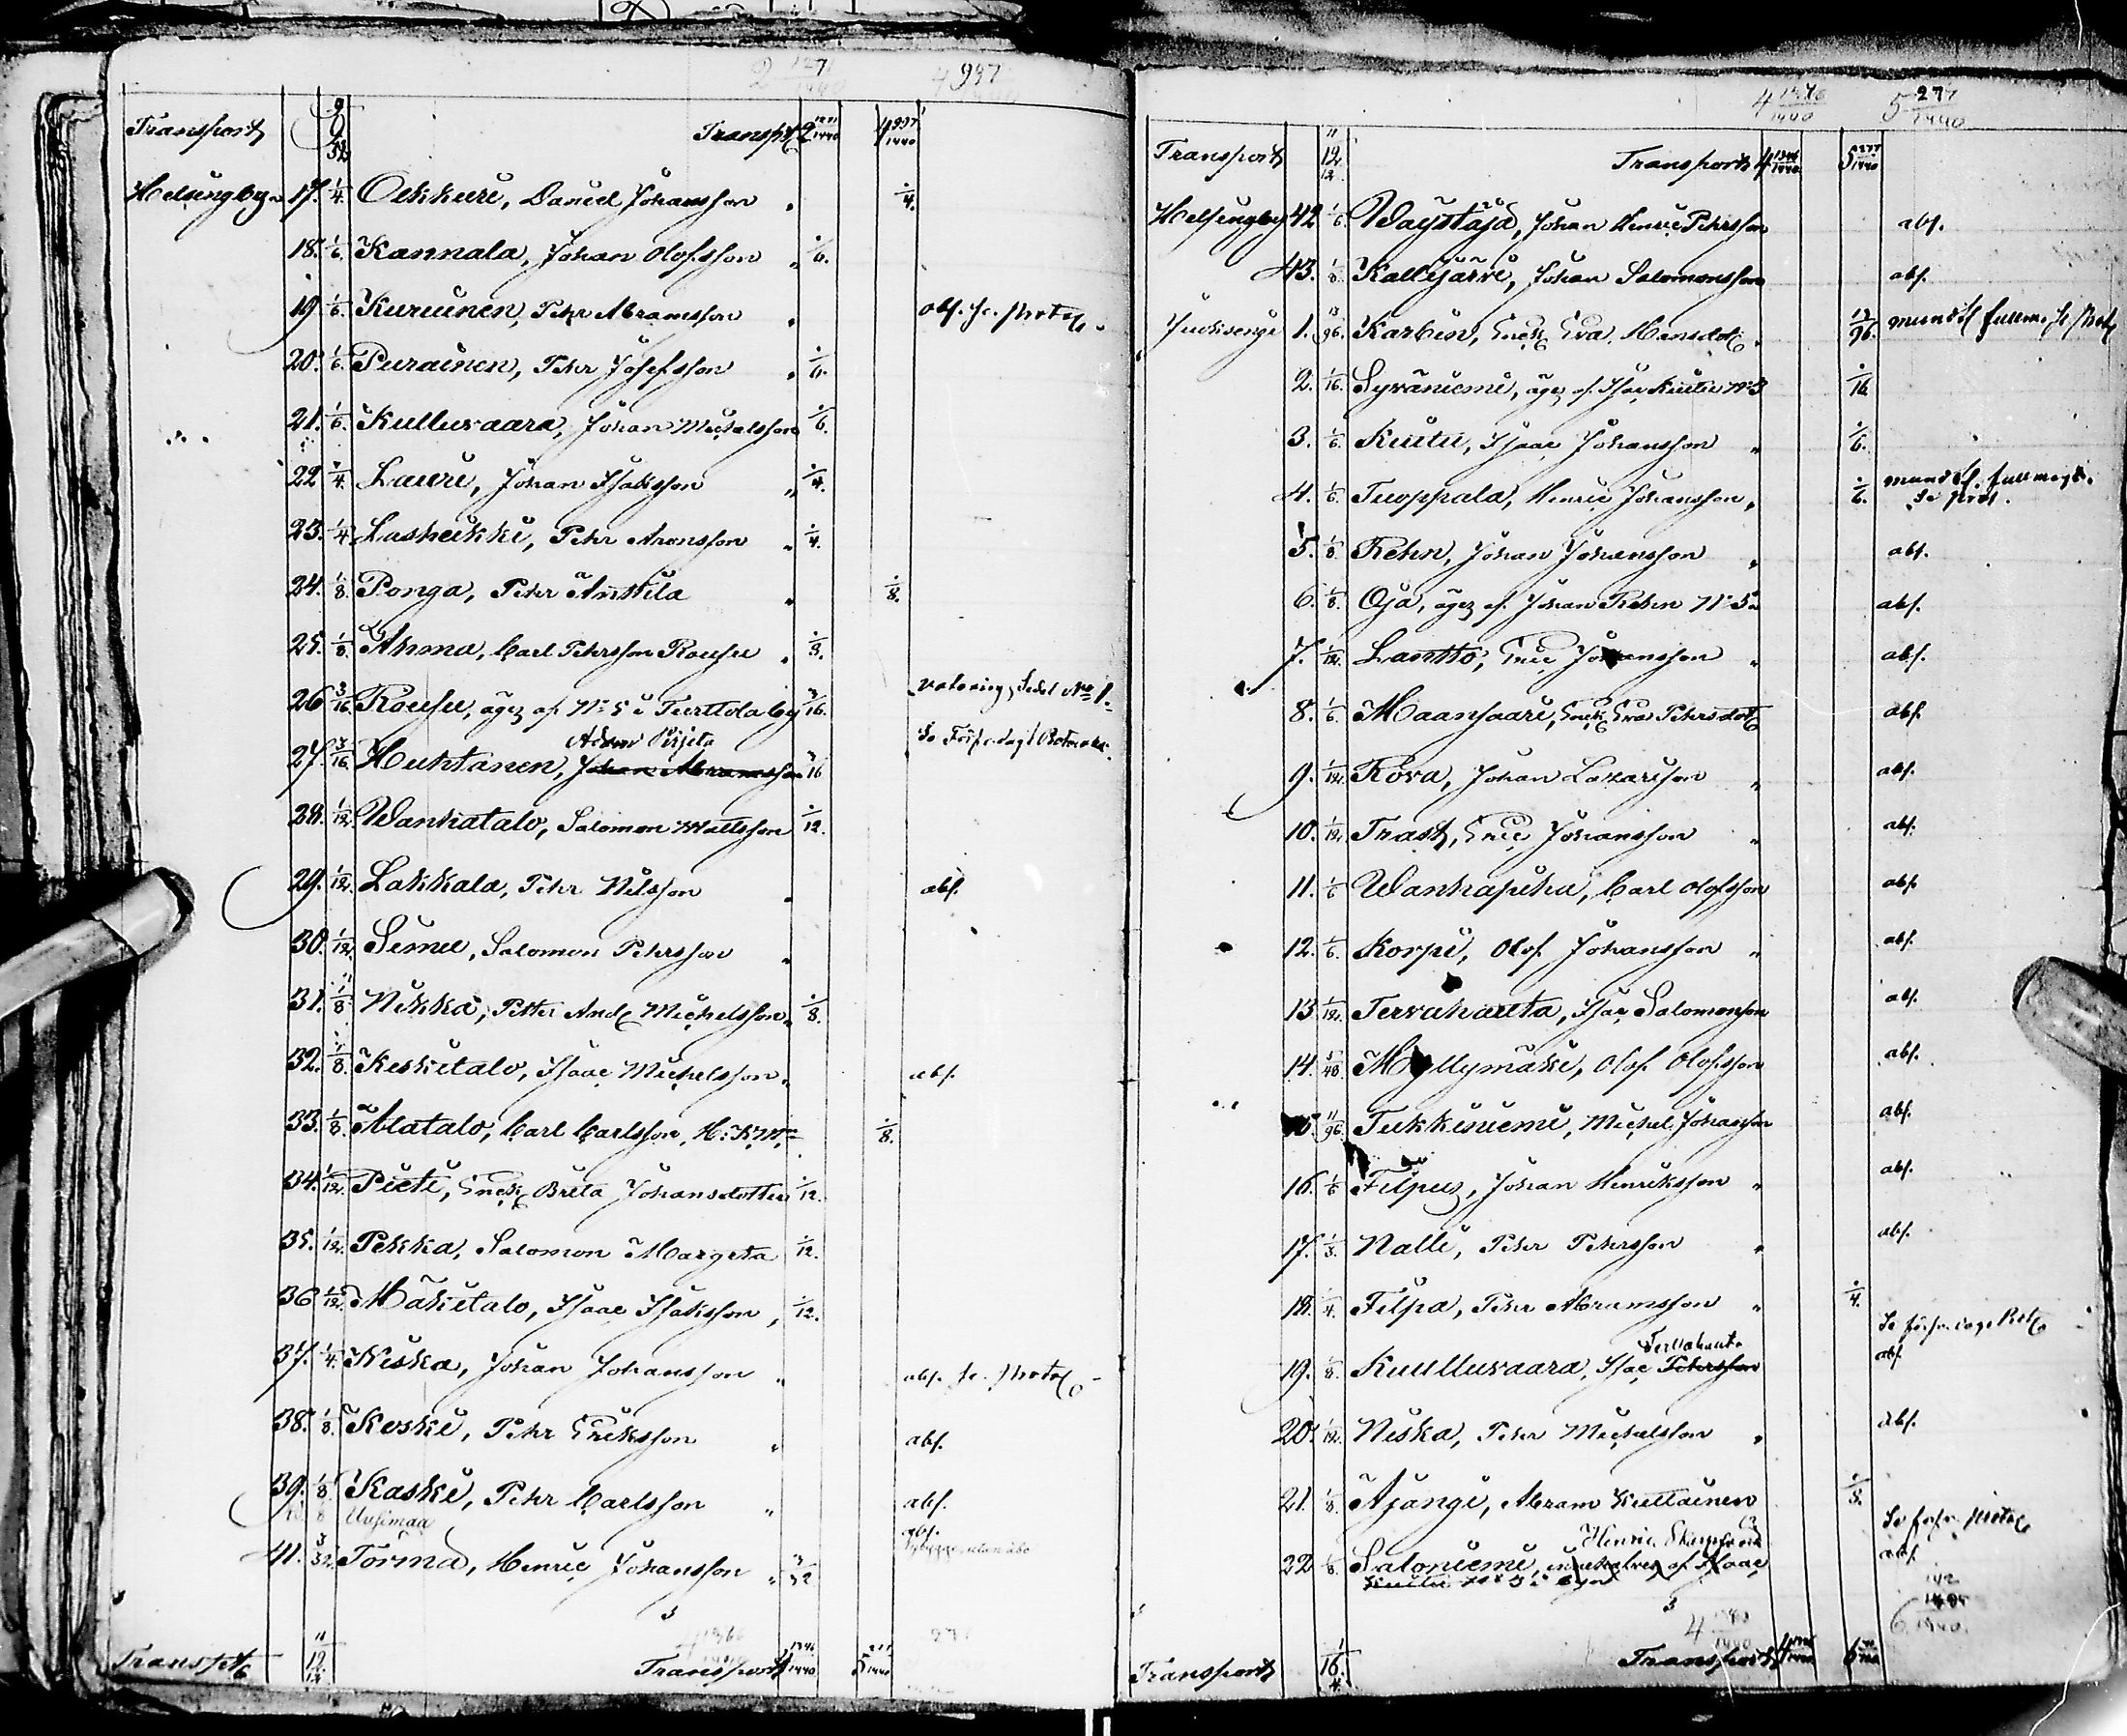 2 1271/1440 4 937/1440
Transport 9 9/32 Transpt 2 1271/1440 4 937/1440
Helsingby 17. 1/4. Olkkuri, Daniel Johansson " 1/4.
18. 1/6. Kannala, Johan Olofsson " 1/6.
19 1/6. Kuruinen, Pehr Abramsson " abs. se Protoc.
20. 1/6. Purainen, Pehr Josefsson " 1/6.
21. 1/6. Kulluvaara, Johan Michelsson 1/6.
22 1/4. Lauri, Johan Isaksson " 1/4.
23. 1/4 Lasheikki, Pehr Aronsson " 1/4.
24. 1/8. Ponga, Pehr Anttila " 1/8.
25. 1/8. Ahma, Carl Pehrsson Rousu " 1/8.
26 3/16. Rousu, äges af No 5 i Turtola by 3/16. No 1.
Adam Pirjeta
27. 3/16. Huhtanen, Johan Abramsson 3/16
28. 1/12. Wanhatalo, Salomon Mattsson 1/12.
29. 1/12. Lakkala, Pehr Nilsson " abs.
30. 1/12. Simu, Salomon Pehrsson "
31. 1/8 Nikka, Petter And. Michelsson " 1/8.
32. 1/8. Keskitalo, Isaac Michelsson " abs.
33. 1/8. Alatalo, Carl Carlsson, 1/8.
34. 1/12. Pieti, Enck. Brita Johansdotter 1/12.
35. 1/12. Pekka, Salomon Margeta 1/12.
36 1/12. Mäkitalo, Isaac Isaksson, 1/12.
37. 1/4. Niska, Johan Johansson " abs. se Protoc.
38. 1/8. Koski, Pehr Eriksson " abs.
39. 1/8. Kaski, Pehr Carlsson " abs.
40. 8 Uusimaa abs.
41. 3/32. Törmä, Henric Johansson " 3/32
Transpt 11 12/12 Transport 4 1346/1440 5 277/1440
4 1376/1440 5 277/1440
Transport 11 12/12 Transport 4 1346/1440 5 277/1440
Helsingby 42 1/6. Wäystäjä, Johan Henric Pehrsson abs.
43. 1/8. Kallijärvi, Johan Salomonsson abs.
Juoksengi 1. 13/96. Karbin, Enck. Eva Hansdotr. 13/96. mundtl. fullm. se Prot.
2. 1/16. Syväniemi, äges af Isac Kuitu No 3 1/16
3. 1/6. Kuitu, Isaac Johansson " 1/6.
4. 1/6. Tuoppala, Henric Johansson " 1/6. mundtl. fullmagt. se Prot.
5. 1/8. Rehn, Johan Johansson " abs.
6. 1/8. Oja, äges af Johan Rehn No 5 abs.
7. 1/12. Lantto, Eric Johansson " abs.
8. 1/6. Maansaari, Enck. Eva Pehrsdotr. abs.
9. 1/12. Rova, Johan Lazarsson " abs.
10. 1/12. Trast, Eric Johansson " abs.
11. 1/6 Wanhapiha, Carl Olofsson abs
12. 1/6. Korpi, Olof Johansson " abs.
13 1/12. Tervahauta, Isac Salomonson abs.
14. 5/48. Myllymäki, Olof Olofsson abs.
15. 11/96. Tukkiniemi, Michel Johansson abs.
16. 1/6 Filpus, Johan Henriksson " abs.
17. 1/8. Nalli, Pehr Pehrsson " abs.
18. 1/4. Filpa, Pehr Abramsson " 1/4.
Tervahauta
19. 1/8. Kuulluvaara, Isac Pehrsson abs.
20. 1/12. Niska, Pehr Michelsson " abs.
21. 1/8. Äjängi, Abram Kuttainen 1/8.
Henric
22 1/8. Saloniemi, af Isaac abs.
Kuitu No 3 i byn
Transport 16. Transport